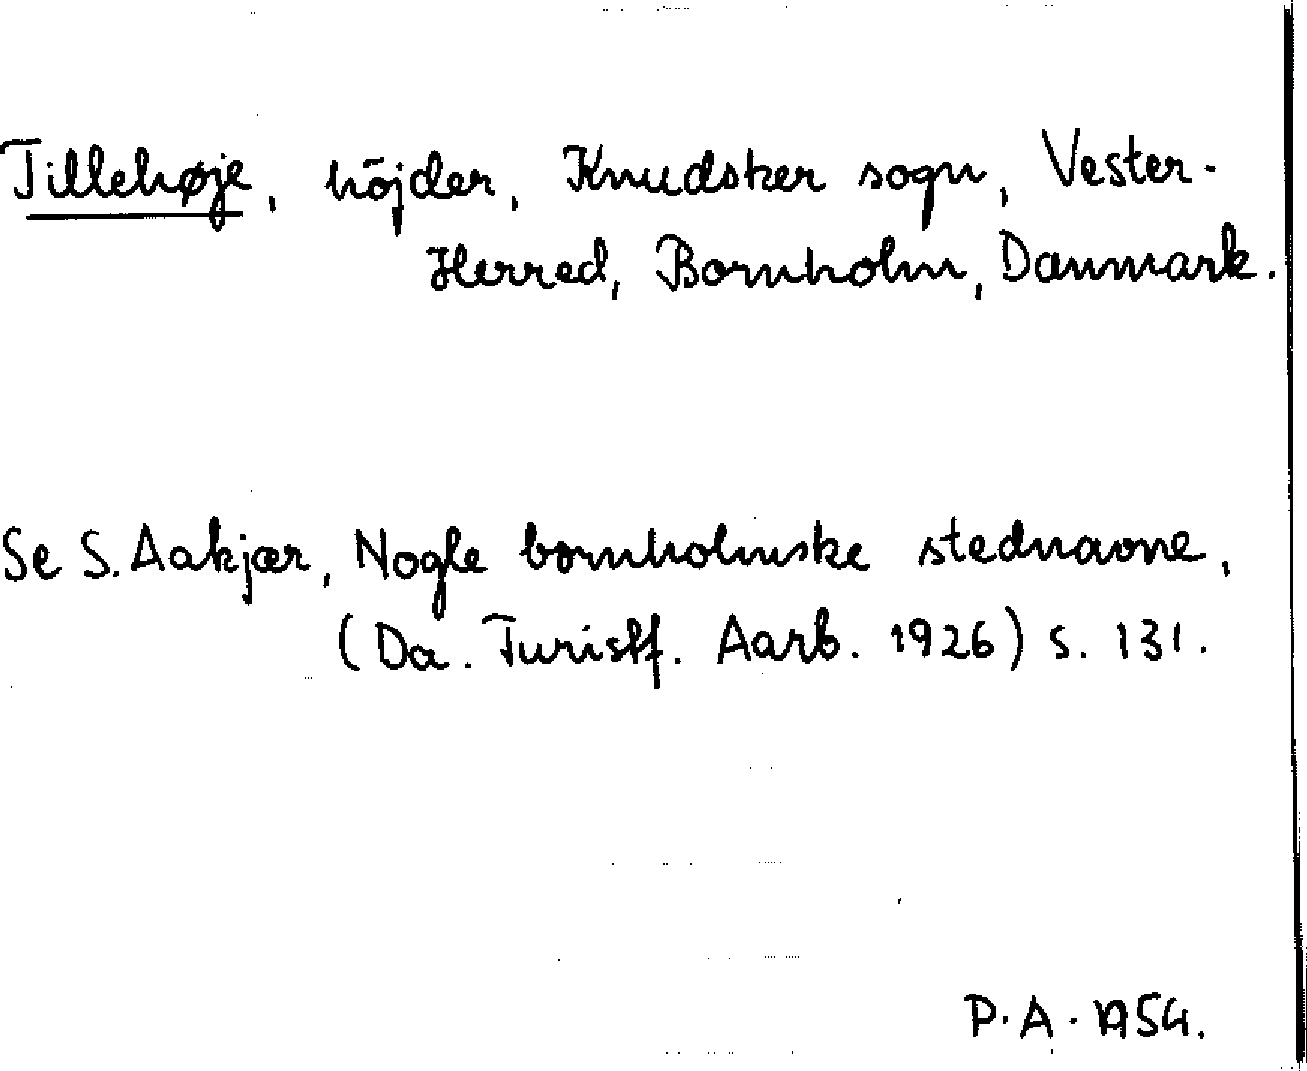 Tillehøje, höjder, Knudsker sogn, Vester-
Herred, Bornholm, Danmark.
Se S. Aakjær, Nogle bornholmske stednavne,
(Da. Turistf. Aarb. 1926) s. 131.
P.A. 1954.